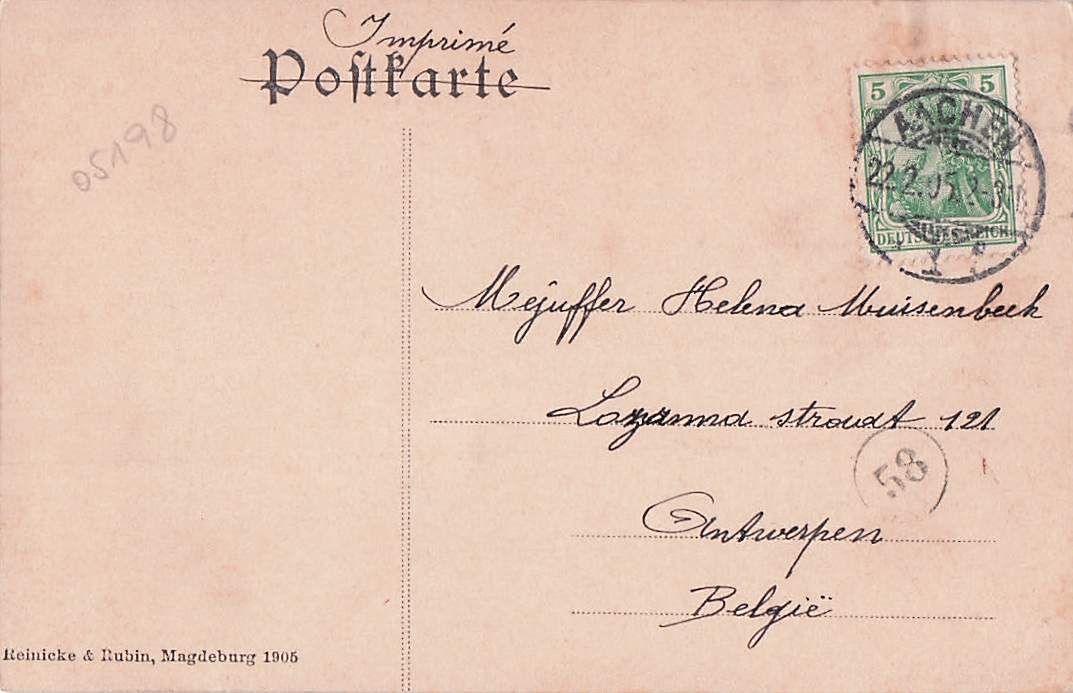 Imprimé
Postkarte
05198
5 5
AACHEN
22.2.05
DEUTSCHES REICH
1
Mejuffer Helena Muisenbeek
straat 121
58
Antwerpen
België
Reinicke & Rubin, Magdeburg 1905